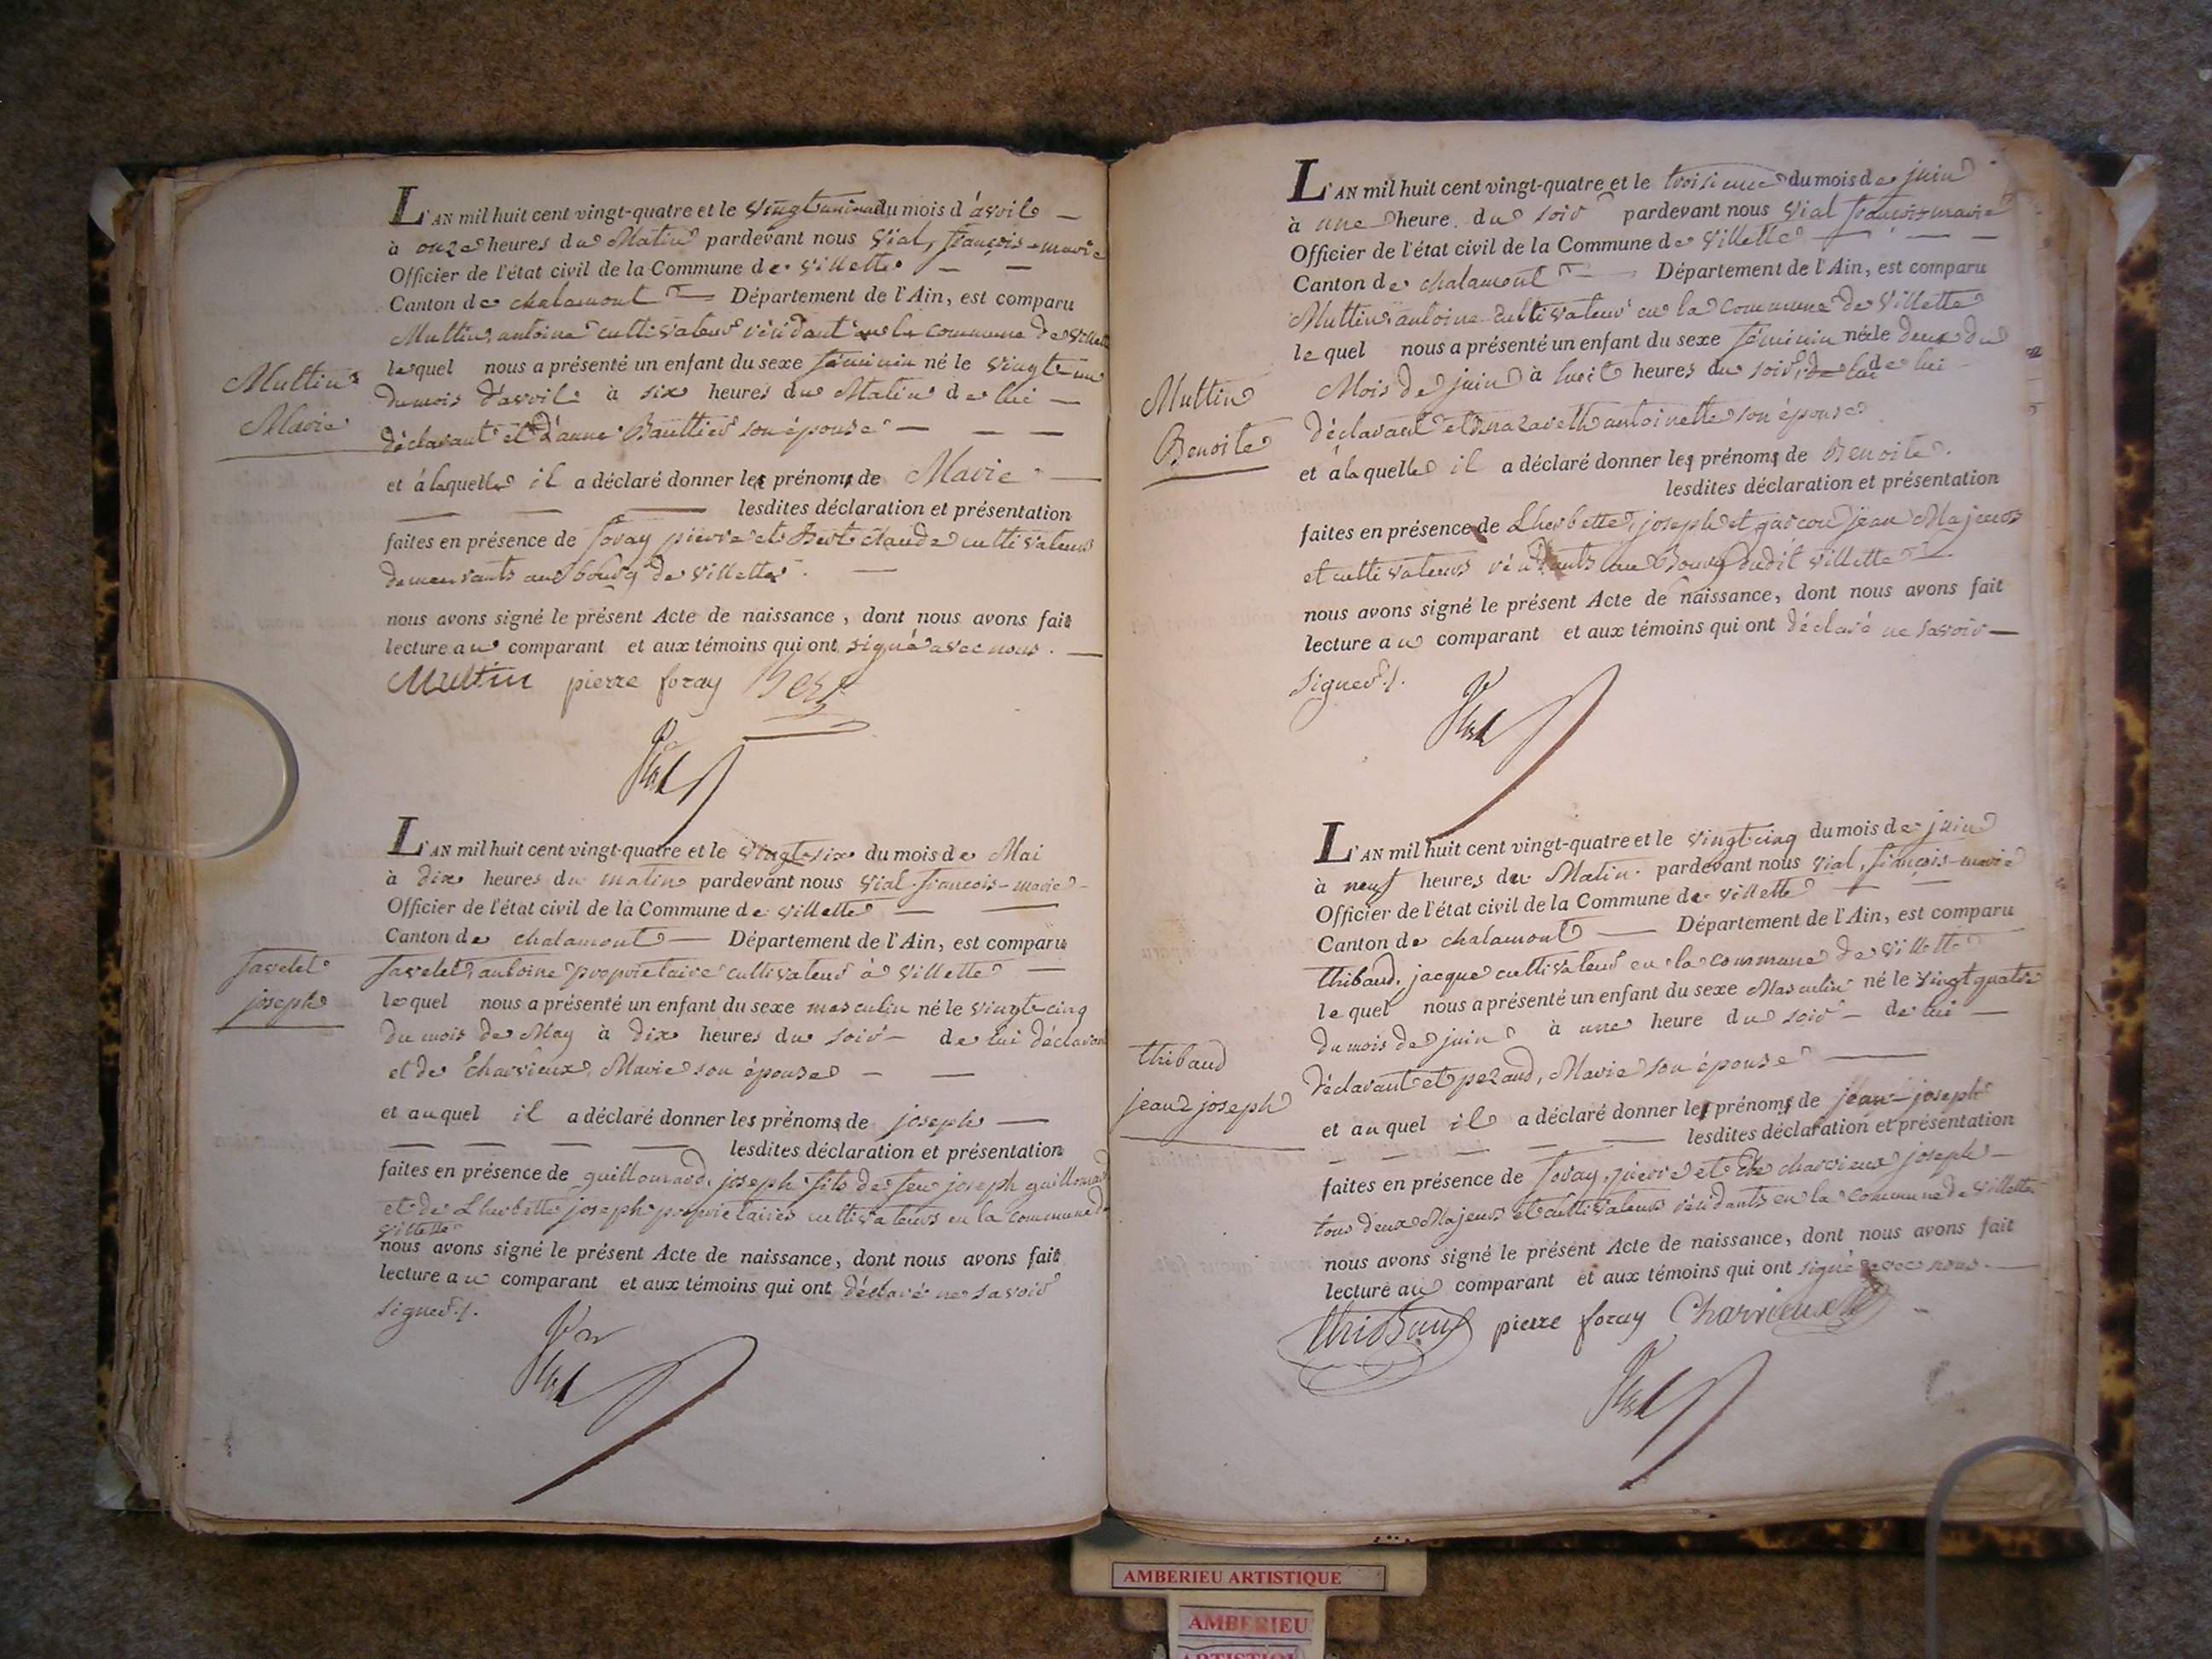 L'AN mil huit cent vingt-quatre et le vingt unieme du mois d'avril
à onze heures du Matin pardevant nous Vial, françois-marie
Officier de l'état civil de la Commune de Villette
Canton de chalamont Département de l'Ain, est comparu
Multin, antoine cultivateur résidant en la commune de Villette
Multin
Marie
lequel nous a présenté un enfant du sexe féminin né le vingt-un
du mois d'avril à six heures du Matin de lui
déclarant et d'anne Baultier son épouse
et à laquelle il a déclaré donner les prénoms de Marie
lesdites déclaration et présentation
faites en présence de foray pierre et Claude cultivateurs
demeurants au bourg de Villette
nous avons signé le présent Acte de naissance, dont nous avons fait
lecture au comparant et aux témoins qui ont signé avec nous.
Multin pierre foray
Vial
L'AN mil huit cent vingt-quatre et le vingt-six du mois de Mai
à dix heures du matin pardevant nous Vial françois-marie
Officier de l'état civil de la Commune de Villette
Canton de chalamont Département de l'Ain, est comparu
favelet
joseph
favelet, antoine propriétaire cultivateur à Villette
lequel nous a présenté un enfant du sexe masculin né le vingt-cinq
du mois de May à dix heures du soir de lui déclarant
et de Charvieux, Marie son épouse
et auquel il a déclaré donner les prénoms de joseph
lesdites déclaration et présentation
faites en présence de guillomard, joseph fils de feu joseph guillomard
et de Lherbette joseph propriétaires cultivateurs en la commune de
Villette
nous avons signé le présent Acte de naissance, dont nous avons fait
lecture au comparant et aux témoins qui ont déclaré ne savoir
signer./.
Vial
L'AN mil huit cent vingt-quatre et le troisieme du mois de juin
à une heure du soir pardevant nous Vial françois-marie
Officier de l'état civil de la Commune de Villette
Canton de chalamont Département de l'Ain, est comparu
Multin, antoine cultivateur en la commune de Villette
lequel nous a présenté un enfant du sexe féminin née le deux du
Multin
Benoite
Mois de juin à huit heures du soir, de lui de lui
déclarant et nazareth antoinette son épouse
et à laquelle il a déclaré donner les prénoms de Benoite.
lesdites déclaration et présentation
faites en présence de Lherbette, joseph et jean Majeurs
et cultivateurs résidants au Bourg dudit Villette
nous avons signé le présent Acte de naissance, dont nous avons fait
lecture au comparant et aux témoins qui ont déclaré ne savoir
signer./.
Vial
L'AN mil huit cent vingt-quatre et le vingt cinq du mois de juin
à neuf heures du Matin pardevant nous Vial, françois-marie
Officier de l'état civil de la Commune de Villette
Canton de chalamont Département de l'Ain, est comparu
thibaud, jacque cultivateur en la commune de Villette
lequel nous a présenté un enfant du sexe Masculin né le vingt quatre
du mois de juin à une heure du soir de lui
thibaud
jean joseph
déclarant et pezaud, Marie son épouse
et auquel il a déclaré donner les prénoms de jean-joseph
lesdites déclaration et présentation
faites en présence de foray, pierre et charvieux joseph
tous deux Majeurs et cultivateurs résidants en la commune de Villette
nous avons signé le présent Acte de naissance, dont nous avons fait
lecture au comparant et aux témoins qui ont signé avec nous.
thibaud pierre foray Charvieux
Vial
AMBERIEU ARTISTIQUE
AMBERIEU
ARTISTIQUE